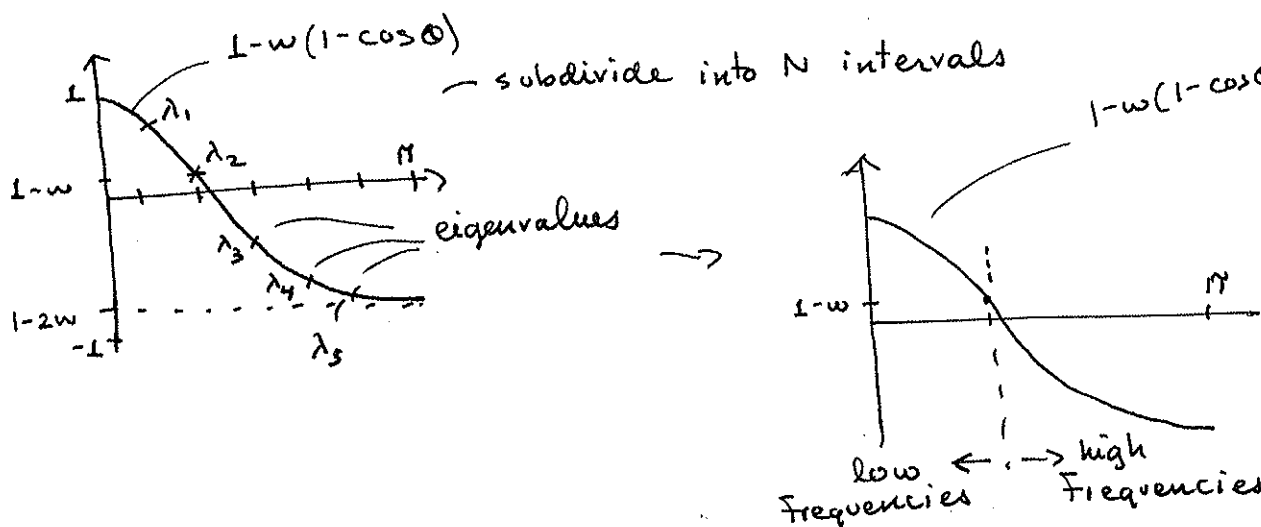 1-w(1-cosθ)
- subdivide into N intervals
1
λ1
λ2
π
1-w
eigenvalues
λ3
λ4
1-2w
-1
λ5
→
1-w(1-cosθ
1-w
π
low ← . → high
Frequencies Frequencies